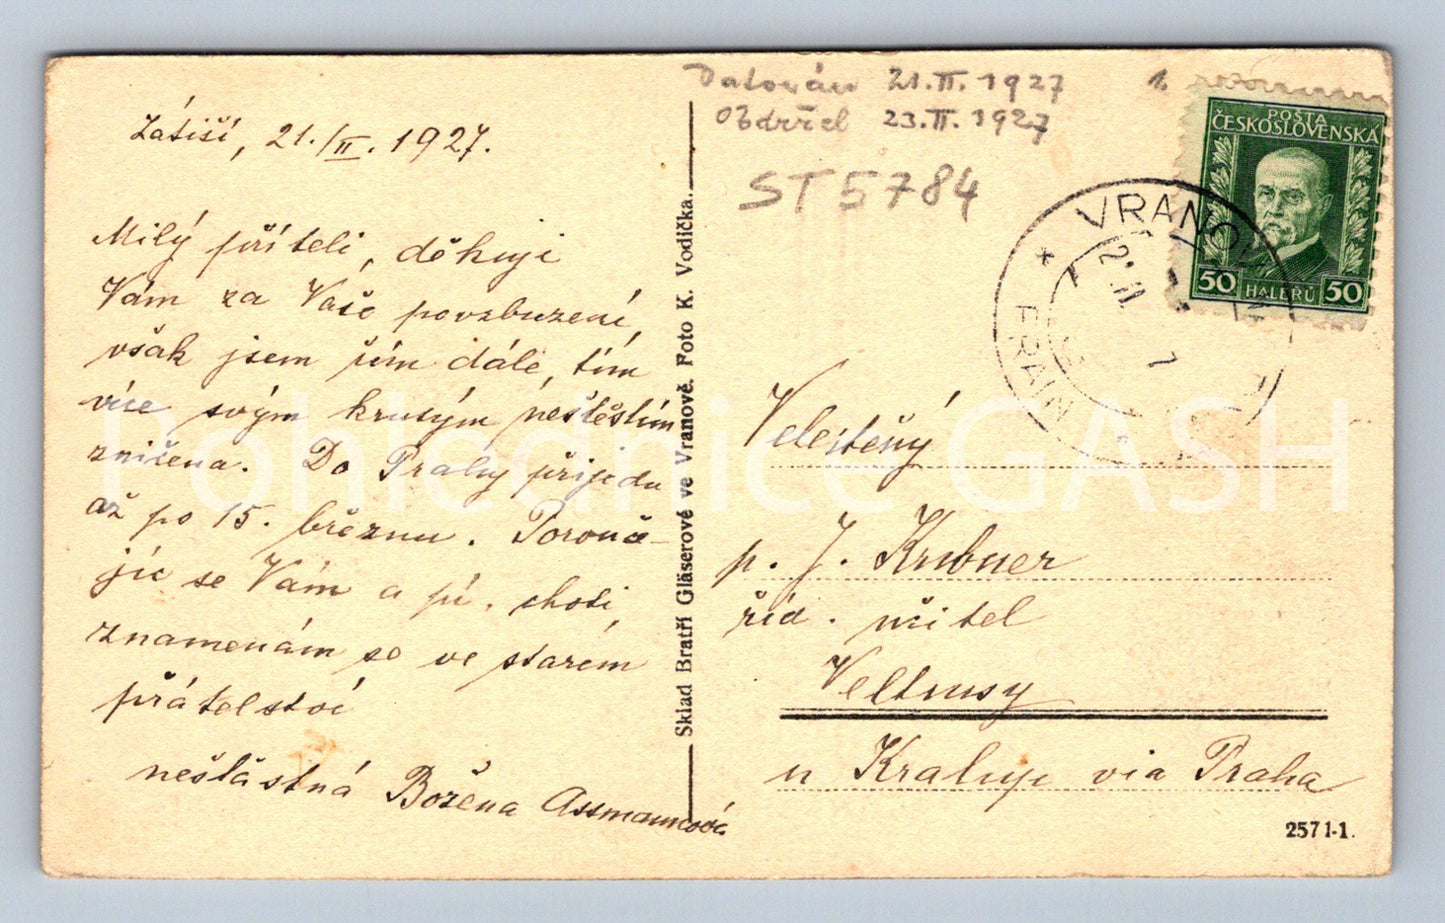 Datován 21.II.1927 1.
Obdržel 23.II.1927
ST5784
Zátiší, 21./II. 1927.
Milý příteli, děkuji
Vám za Vaše povzbuzení,
však jsem čím dále, tím
více svým krutým neštěstím
zničena. Do Prahy přijedu
až po 15. březnu. Porouče-
jíc se Vám a pí. choti,
znamenám se ve starém
přátelství
nešťastná Božena Assmannová
Sklad Bratří Gläserové ve Vranově. Foto K. Vodička.
POŠTA
ČESKOSLOVENSKÁ
50 HALÉŘŮ 50
VRANOV
FRAIN
Velectěný
p. J. Krubner
říd. učitel
Veltrusy
u Kralup via Praha
2571-1.
Pohlednice GASH